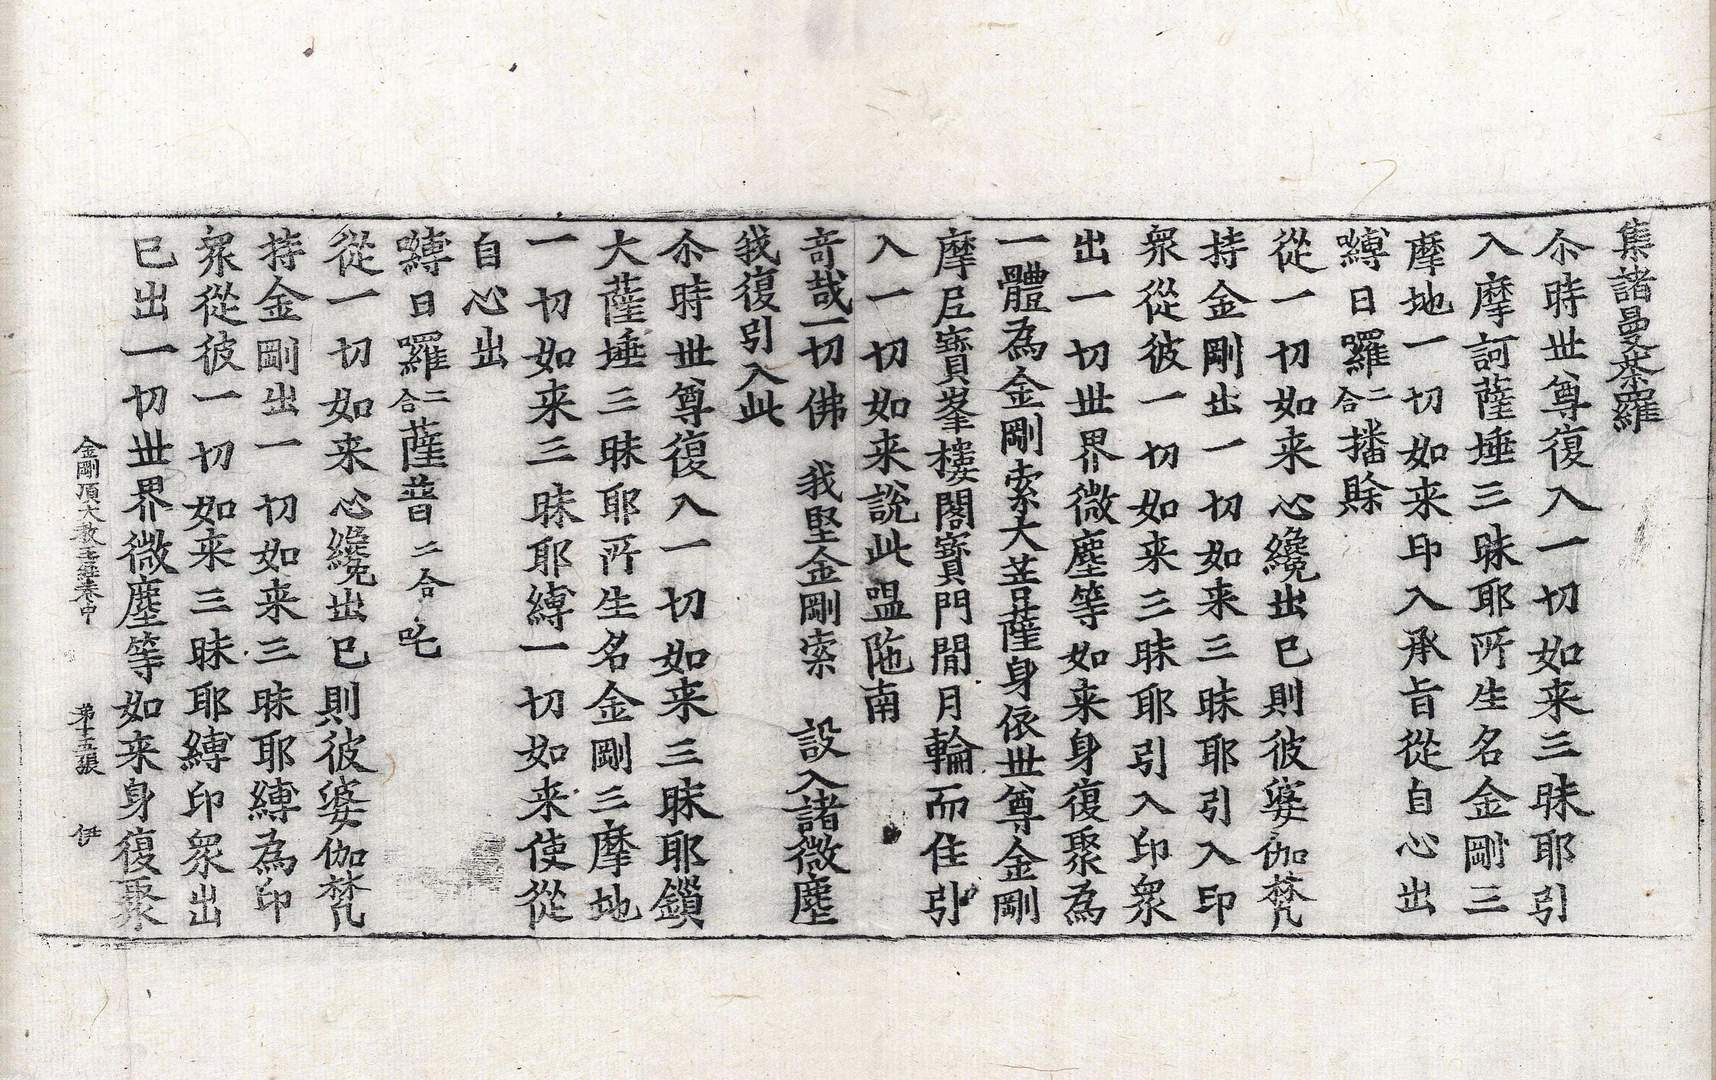 集諸曼荼羅
尒時世尊復入一切如来三昧耶引
入摩訶薩埵三昧耶所生名金剛三
摩地一切如来印入承旨從自心出
嚩日囉二合播賒
從一切如来心纔出已則彼婆伽梵
持金剛出一切如来三昧耶引入印
衆從彼一切如来三昧耶引入印衆
出一切世界微塵等如来身復聚為
一體為金剛索大菩薩身依世尊金剛
摩尼寶峯樓閣寶門閒月輪而住引
入一切如来說此嗢陁南
奇哉一切佛　我堅金剛索　設入諸微塵
我復引入此
尒時世尊復入一切如来三昧耶鎖
大薩埵三昧耶所生名金剛三摩地
一切如来三昧耶縛一切如来使從
自心出
嚩日囉二合薩普二合吒
從一切如来心纔出已則彼婆伽梵
持金剛出一切如来三昧耶縛為印
衆從彼一切如来三昧耶縛印衆出
已出一切世界微塵等如来身復聚
金剛頂大教王經卷中　第十五張　伊